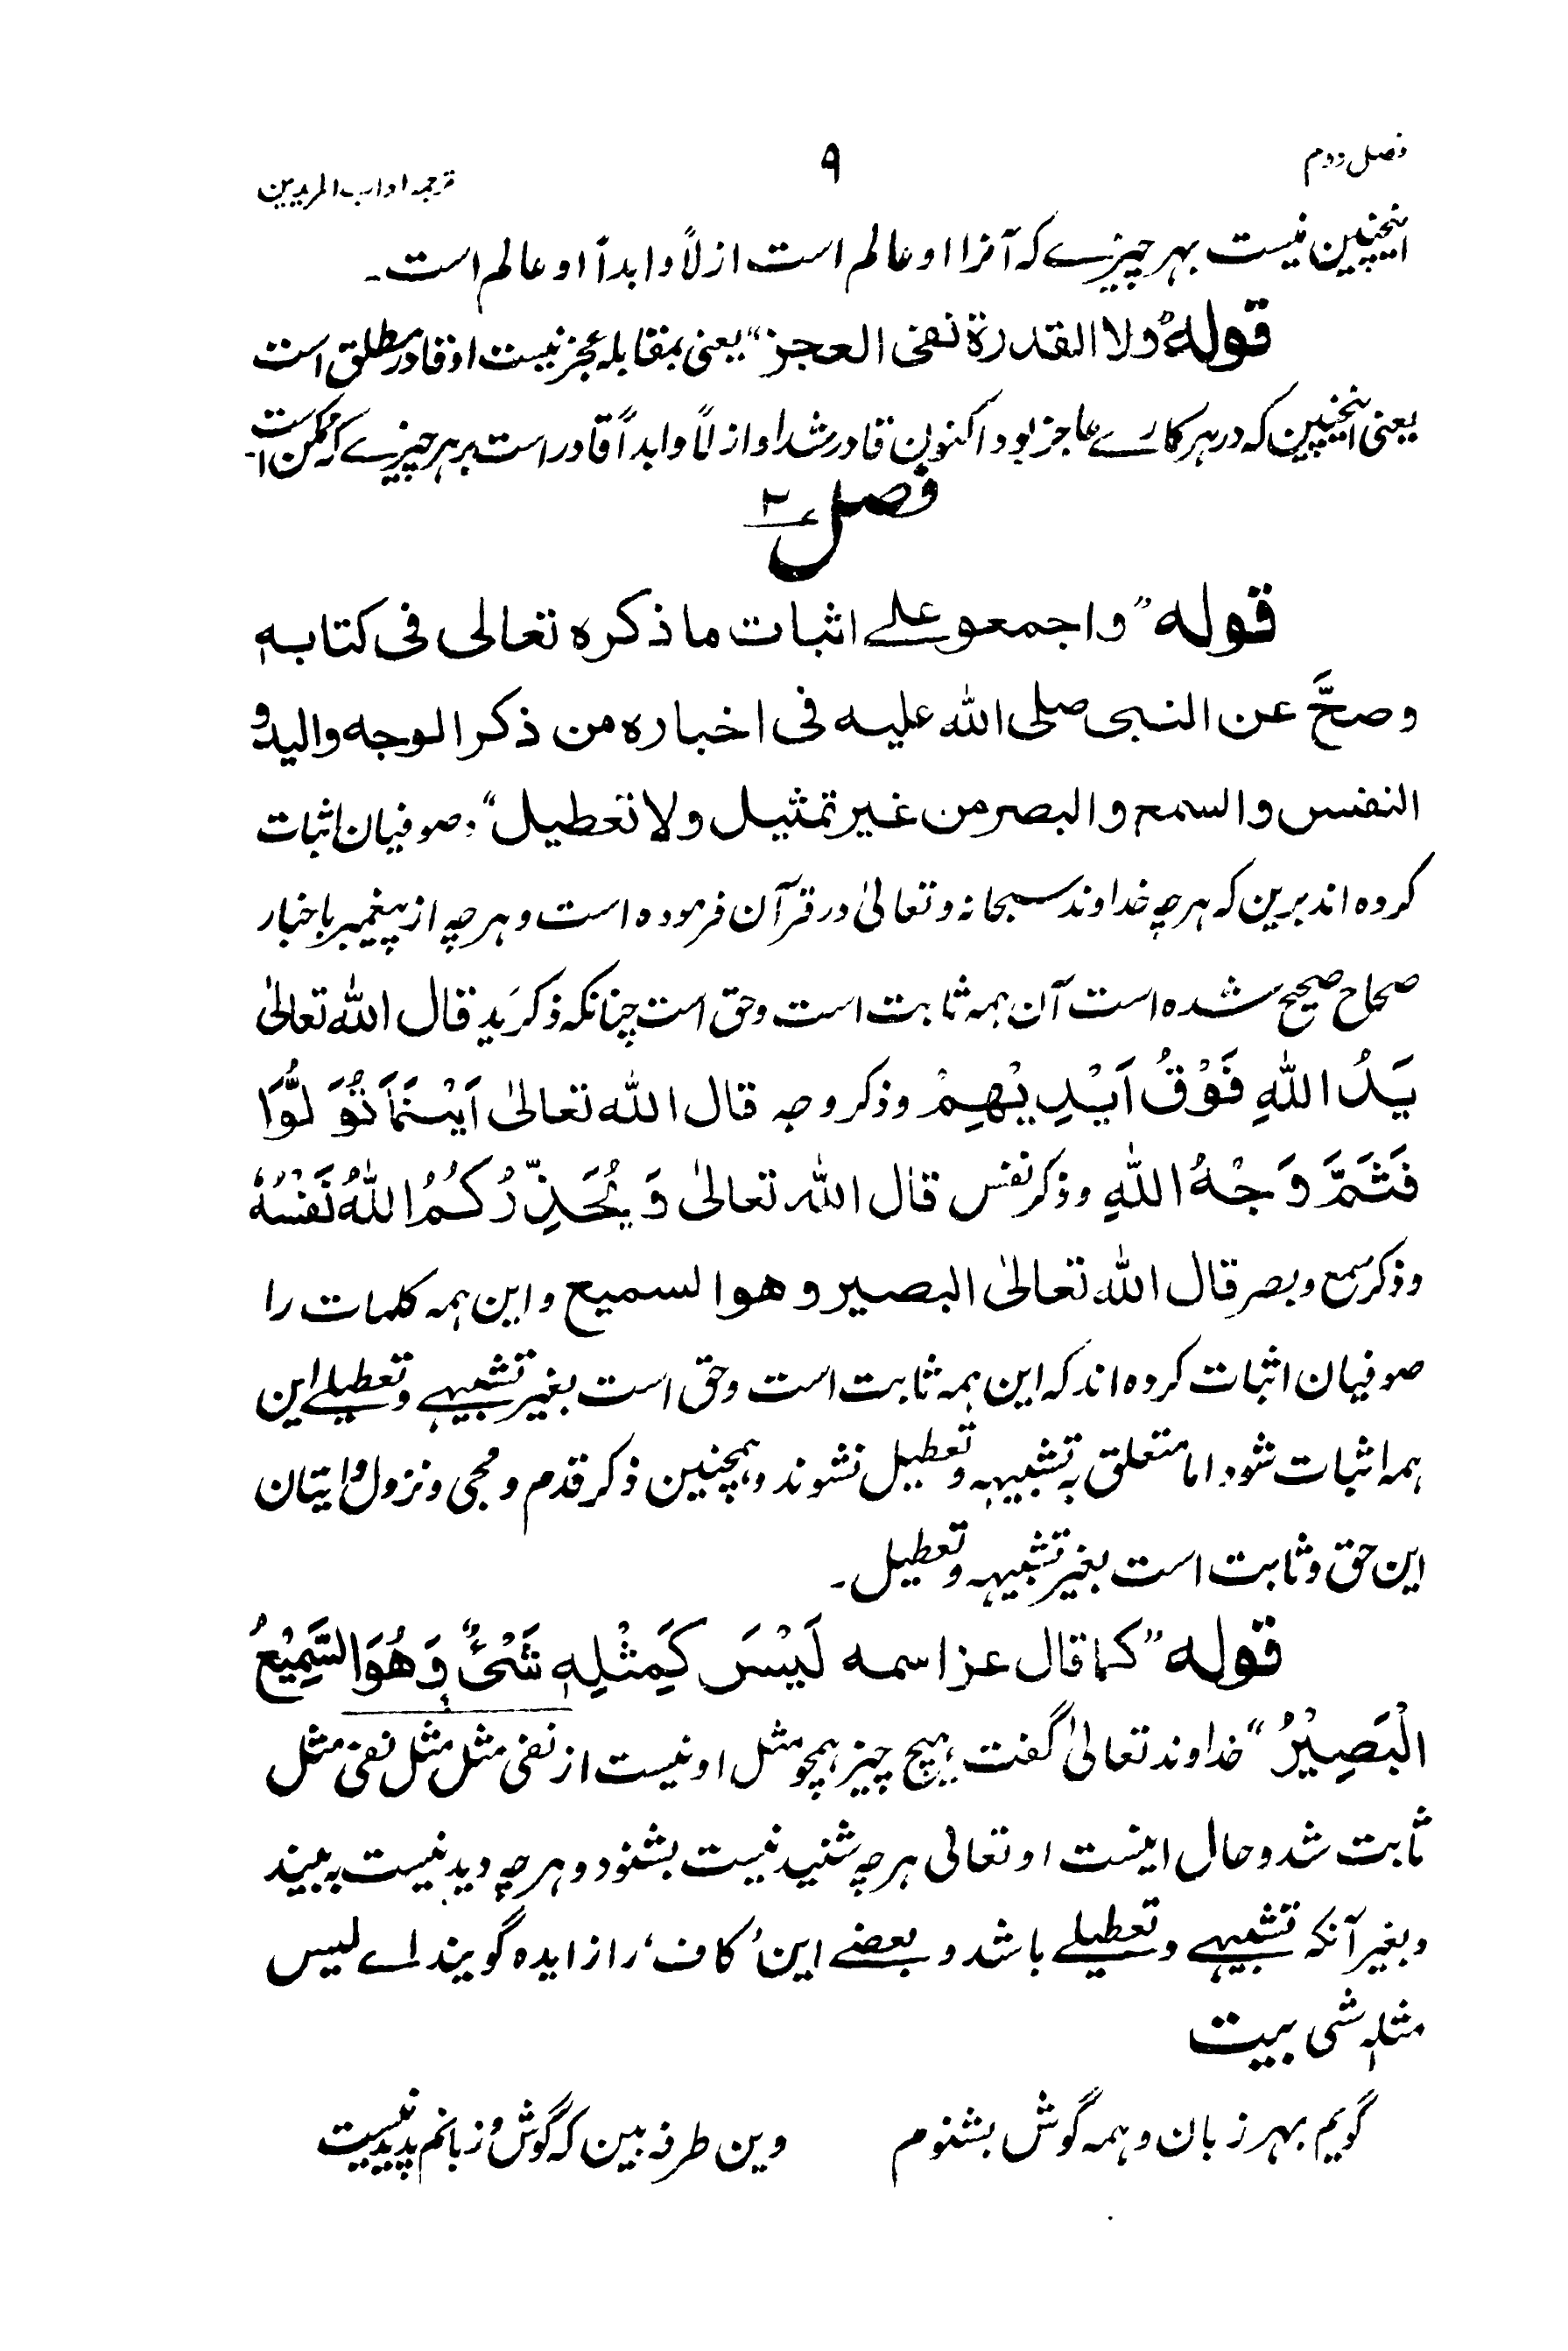 فصل دوم
۹
ترجمہ اداب المریدین
اینچنین نیست بہر چیزے کہ آنرا او عالم است ازلاً وابداً او عالم است۔
قولہ ”ولا القدرة نفی العجز“ یعنی بمقابلہ عجز نیست او قادر مطلق است
یعنی اینچنین کہ در ہر کارے عاجز بود اکنون قادر شد او ازلاً وابداً قادر است بر ہر چیزے کہ ممکن است۔
فصل ۲
قولہ ”واجمعو علے اثبات ما ذکرہ تعالی فی کتابہ
وصحَّ عن النبی صلی اللہ علیہ فی اخبارہ من ذکر الوجہ والید و
النفس والسمع والبصر من غیر تمثیل ولا تعطیل“ صوفیان اثبات
کردہ اند برین کہ ہرچہ خداوند سبحانہ وتعالیٰ در قرآن فرمودہ است وہرچہ از پیغمبر باخبار
صحاح صحیح شدہ است آن ہمہ ثابت است وحق است چنانکہ ذکر ید قال اللہ تعالیٰ
یَدُ اللہِ فَوْقَ اَیْدِیْھِمْ وذکر وجہ قال اللہ تعالیٰ اَیْنَمَا تُوَلُّوْا
فَثَمَّ وَجْہُ اللہِ وذکر نفس قال اللہ تعالیٰ وَیُحَذِّرُکُمُ اللہُ نَفْسَہٗ
وذکر سمع وبصر قال اللہ تعالیٰ البصیر وھوا لسمیع واین ہمہ کلمات را
صوفیان اثبات کردہ اند کہ این ہمہ ثابت است وحق است بغیر تشبیہے وتعطیلے این
ہمہ اثبات شود اما متعلق بہ تشبیہہ وتعطیل نشوند وہمچنین ذکر قدم ومجی ونزول واتیان
این حق وثابت است بغیر تشبیہہ وتعطیل۔
قولہ ”کما قال عز اسمہ لَیْسَ کَمِثْلِہٖ شَیْءٌ وَھُوَ السَّمِیْعُ
الْبَصِیْرُ“ خداوند تعالیٰ گفت ہیچ چیز ہمچو مثل او نیست از نفی مثل مثل نفی مثل
ثابت شد وحال اینست او تعالی ہرچہ شنیدنیست بشنود وہرچہ دیدنیست بہ بیند
وبغیر آنکہ تشبیہے وتعطیلے باشد وبعضے این ’کاف‘ را زایدہ گویند اے لیس
مثلہ شی بیت
گویم بہر زبان وہمہ گوش بشنوم
وین طرفہ بین کہ گوش وزبانم پدید نیست